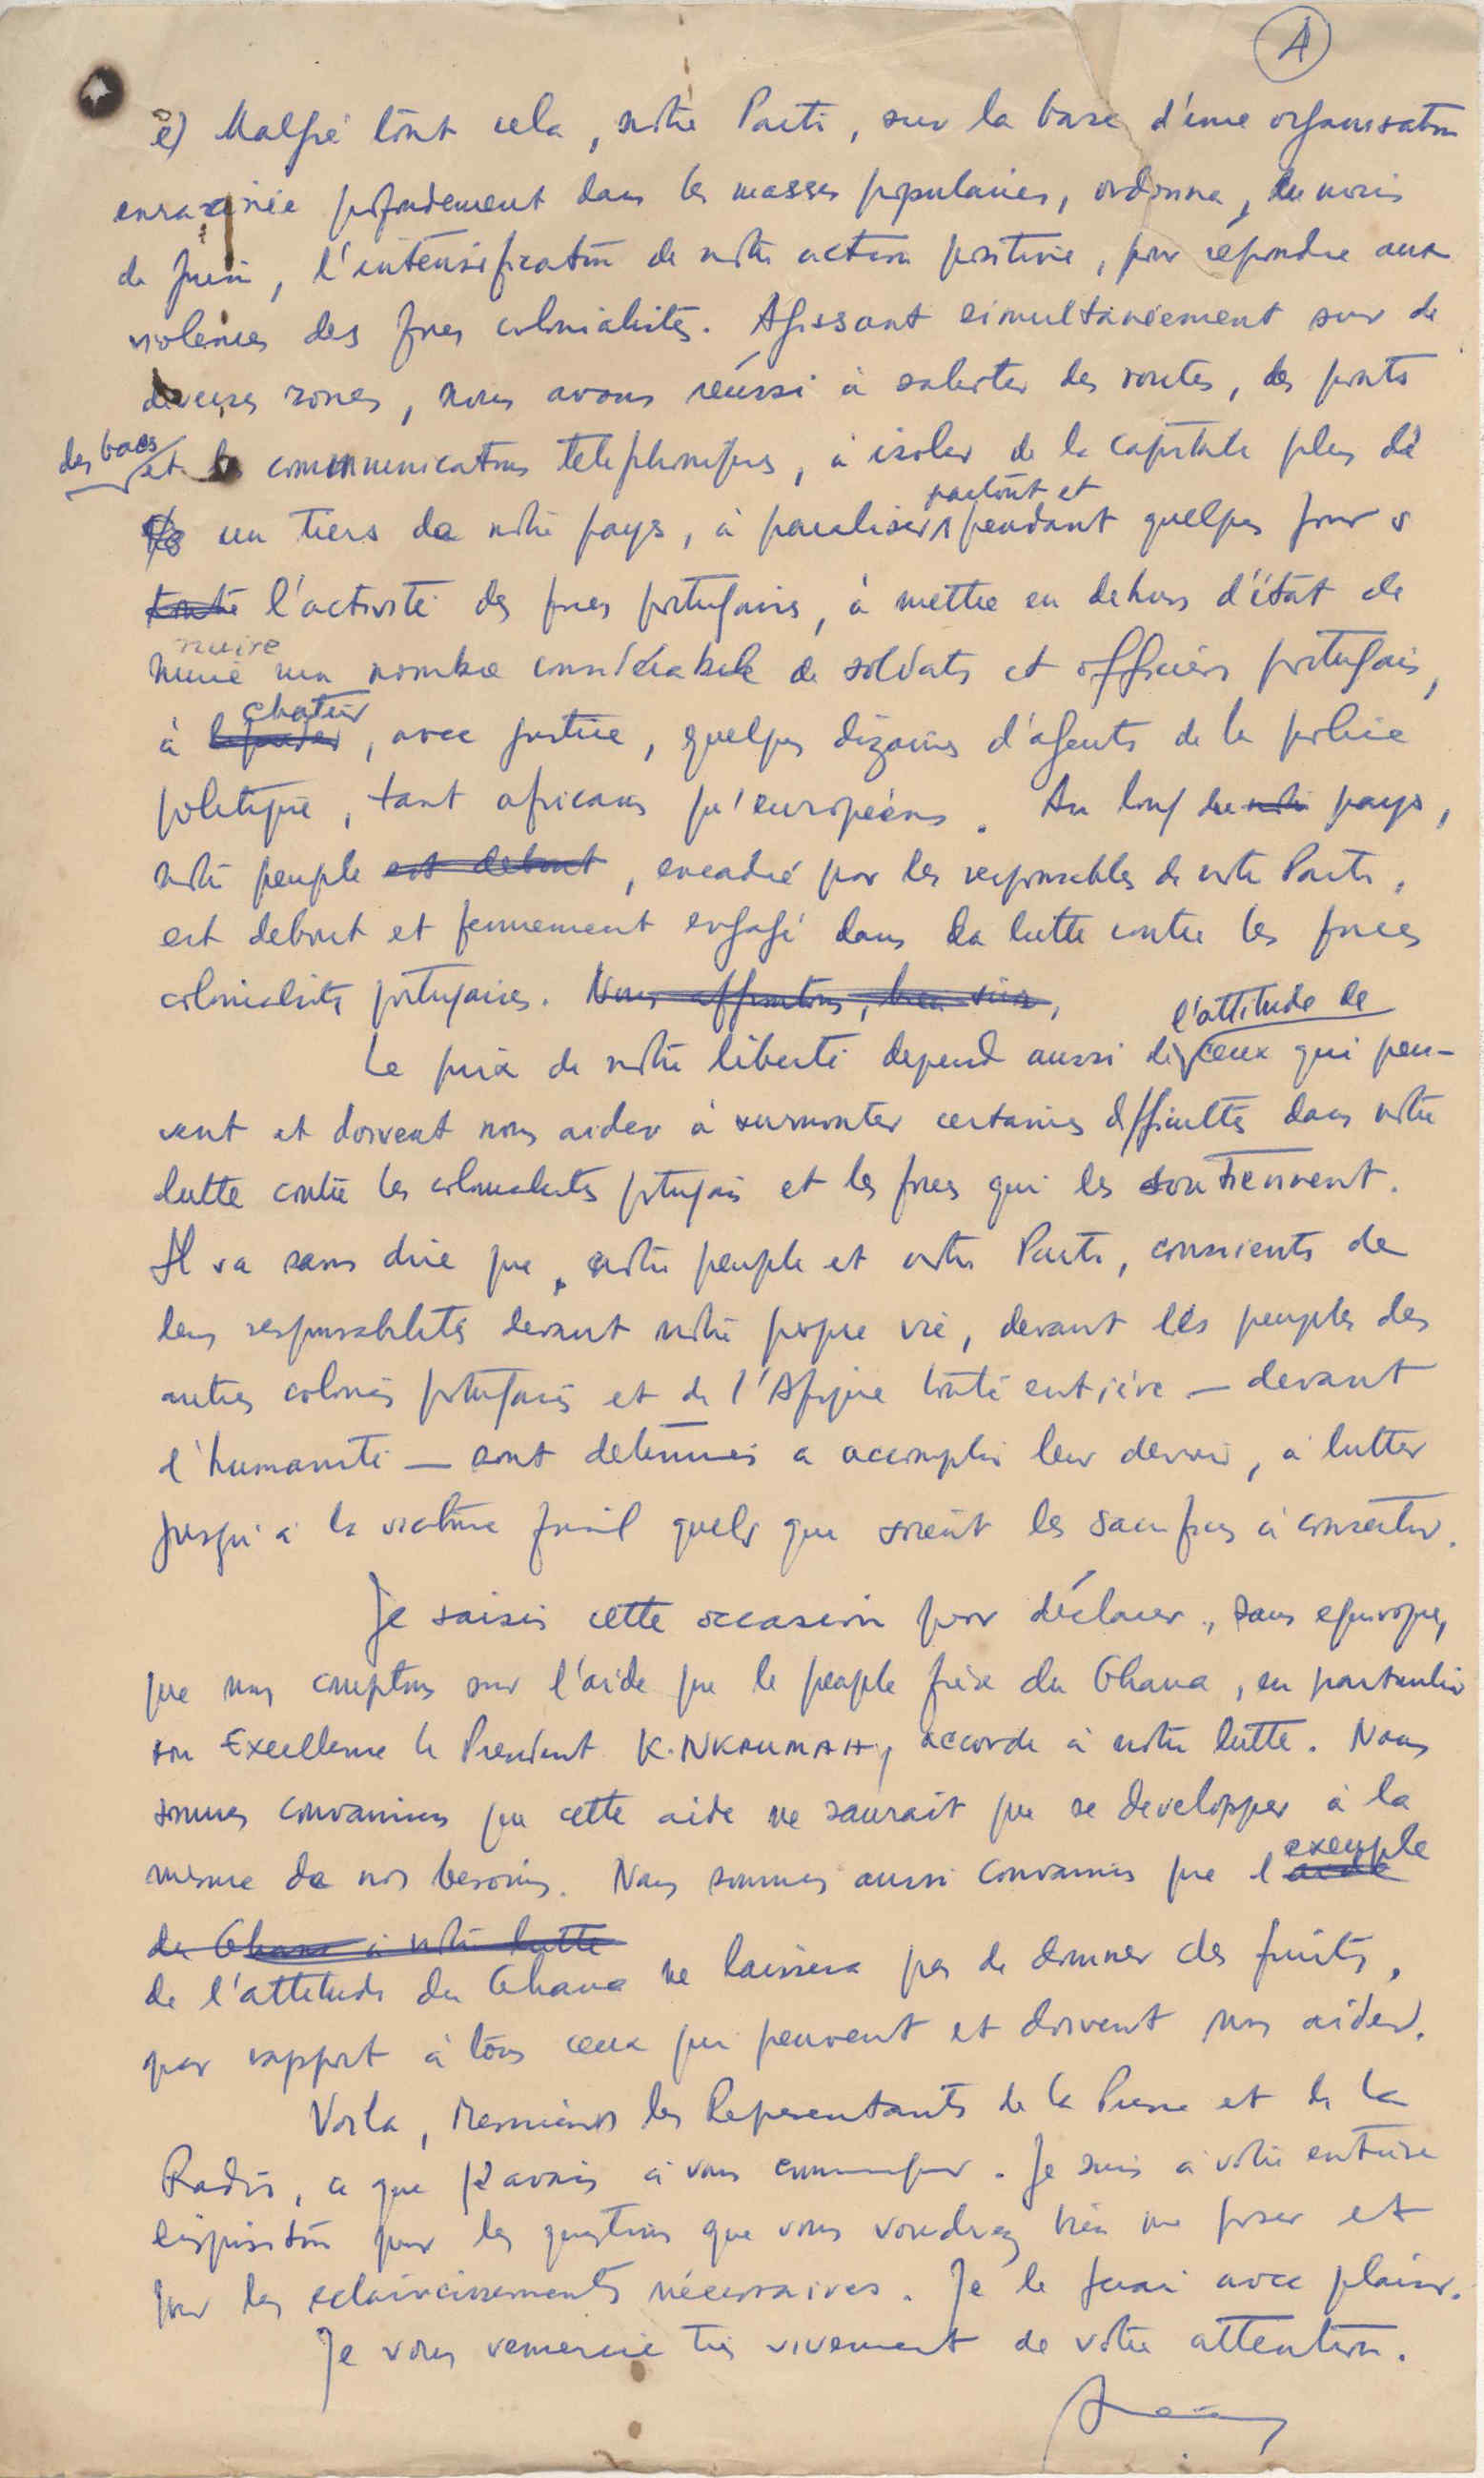 A
e) Malgré tout cela, notre Parti, sur la base d'une organisation
enracinée profondement dans les masses populaires, ordonna, du mois
de Juin, l'intensification de notre action positive, pour répondre aux
violences des forces colonialistes. Agissant simultanément sur de
diverses zones, nous avons réussi à saboter des routes, des ponts
des bacs et les communications telephoniques, à isoler de la capitale plus de
un tiers de notre pays, à paraliser partout et pendant quelques jours
toute l'activité des forces portugaises, à mettre en dehors d'état de
nuire
nuire un nombre considérable de soldats et officiers portugais,
à chatier, avec justice, quelques dizaines d'agents de la police
politique, tant africains qu'européens. Au long du notre pays,
notre peuple est debout, encadré par les responsables de notre Parti,
est debout et fermement engagé dans la lutte contre les forces
colonialistes portugaises. Nous affrontons, bien sûr,
Le prix de notre liberté depend aussi de l'attitude de ceux qui peu-
vent et doivent nous aider à surmonter certaines difficultés dans notre
lutte contre les colonialistes portugais et les forces qui les soutiennent.
Il va sans dire que notre peuple et notre Parti, conscients de
leurs responsabilités devant notre propre vie, devant les peuples des
autres colonies portugaises et de l'Afrique toute entière — devant
l'humanité — sont determinés a accomplir leur devoir, à lutter
jusqu'à la victoire final quels que soient les sacrifices à consentir.
Je saisis cette occasion pour déclarer, sans equivoques,
que nous comptons sur l'aide que le peuple frère du Ghana, en particulier
son Excellence le President K. NKRUMAH, accorde à notre lutte. Nous
sommes convaincus que cette aide ne saurait que se developper à la
mesure de nos besoins. Nous sommes aussi convaincus que l'aide exemple
du Ghana à notre lutte
de l'attitude du Ghana ne laissera pas de donner des fruits,
par rapport à tous ceux qui peuvent et doivent nous aider.
Voila, Messieurs les Representants de la Presse et de la
Radio, ce que j'avais à vous communiquer. Je suis à votre entière
disposition pour les questions que vous voudrez bien me poser et
pour les eclaircissements nécessaires. Je le ferai avec plaisir.
Je vous remercie très vivement de votre attention.